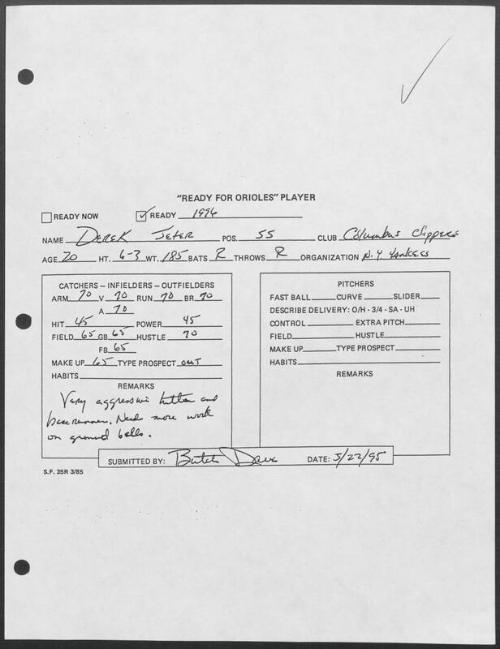 "READY FOR ORIOLES" PLAYER
READY NOW READY 1996
NAME Derek Jeter POS. SS CLUB Columbus Clippers
AGE 20 HT. 6-3 WT. 185 BATS R THROWS R ORGANIZATION N.Y Yankees
CATCHERS – INFIELDERS – OUTFIELDERS
ARM 70 V 70 RUN 70 BR 70
A 70
HIT 45 POWER 45
FIELD 65 GB 65 HUSTLE 70
FB 65
MAKE UP 65 TYPE PROSPECT out
HABITS
REMARKS
Very aggressive hitter and
baserunner. Needs more work
on ground balls.
PITCHERS
FAST BALL CURVE SLIDER
DESCRIBE DELIVERY: O/H - 3/4 - SA - UH
CONTROL EXTRA PITCH
FIELD HUSTLE
MAKE UP TYPE PROSPECT
HABITS
REMARKS
SUBMITTED BY: Butch Davis DATE: 5/22/95
S.F. 35R 3/85